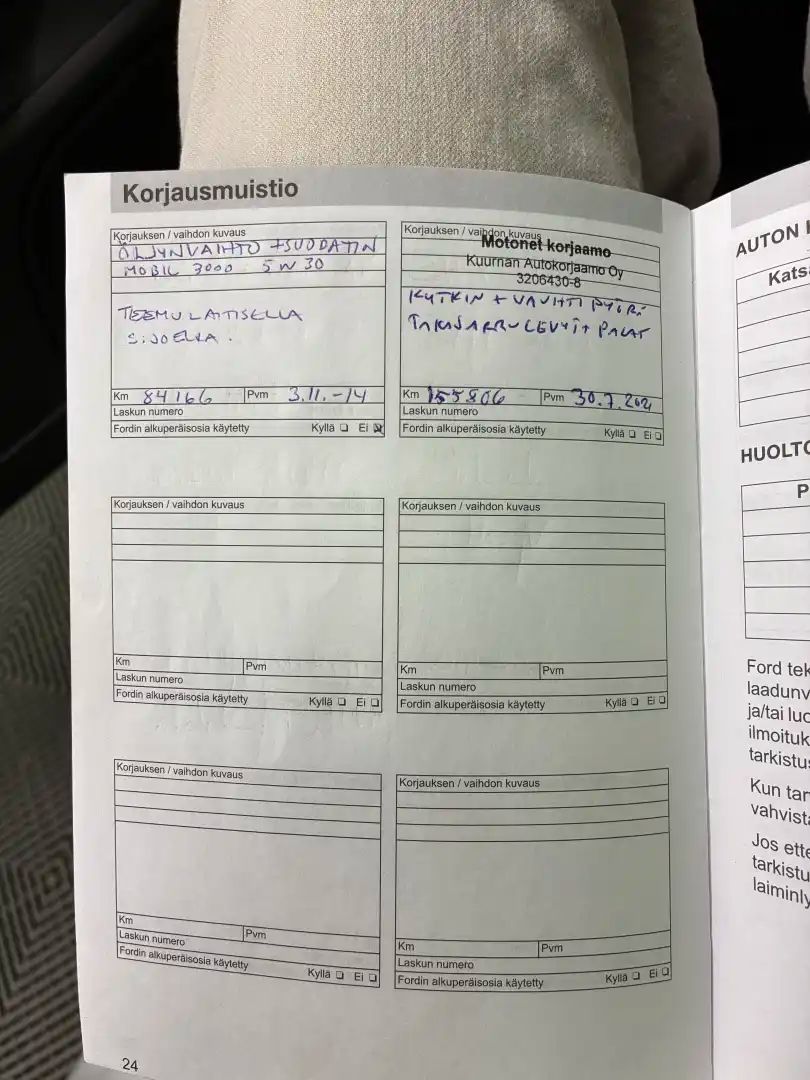 Korjausmuistio
Korjauksen / vaihdon kuvaus
ÖLJYNVAIHTO +SUODATIN
MOBIL 3000 5W30
TEEMU LAITISELLA
Km 84166 Pvm 3.11.-14
Laskun numero
Fordin alkuperäisosia käytetty Kyllä Ei
Korjauksen / vaihdon kuvaus
Motonet korjaamo
Kuurnan Autokorjaamo Oy
3206430-8
KYTKIN + VAUHTIPYÖRÄ
TAKAJARRULEVYT + PALAT
Km 155806 Pvm 30.7.2021
Laskun numero
Fordin alkuperäisosia käytetty Kyllä Ei
Korjauksen / vaihdon kuvaus
Km Pvm
Laskun numero
Fordin alkuperäisosia käytetty Kyllä Ei
Korjauksen / vaihdon kuvaus
Km Pvm
Laskun numero
Fordin alkuperäisosia käytetty Kyllä Ei
Korjauksen / vaihdon kuvaus
Km Pvm
Laskun numero
Fordin alkuperäisosia käytetty Kyllä Ei
Korjauksen / vaihdon kuvaus
Km Pvm
Laskun numero
Fordin alkuperäisosia käytetty Kyllä Ei
24
AUTON
Ford
Kun
Jos